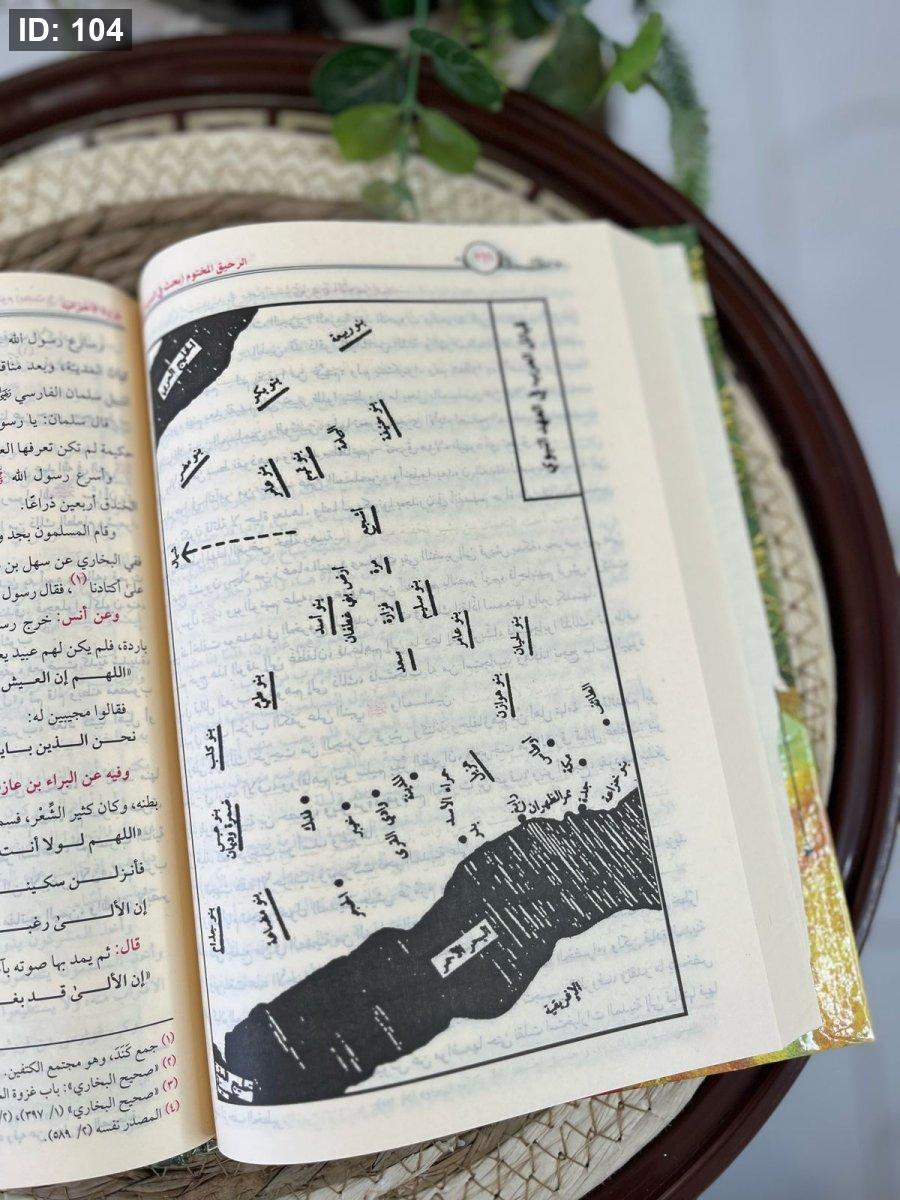 ID: 104
الرحيق المختوم (بحث في
قبائل العرب في العهد النبوي
الخليج العربي
بنو ربيعة
بنو بكر
بنو حنيفة
بنو تميم
شمال
أشجع
مرة
بنو أسد
أرض بني غطفان
فزارة
بنو سليم
بنو عامر
بنو لحيان
سعد
بنو طيء
بنو هوازن
بنو كلب
الطائف
أوطاس
مكة
بنو خزاعة
جدة
مر الظهران
رابغ
المدينة
حمراء الأسد
بدر
وادي القرى
خيبر
فدك
بنو عبس
بنو جذام
بنو قضاعة
البحر الأحمر
الإفريقية
وسارع رسول الله
قال سلمان: يا رسو
حكيمة لم تكن تعرفها الع
وأسرع رسول الله
الخندق أربعين ذراعًا.
وقام المسلمون بجد و
ففي البخاري عن سهل بن
على أكتادنا (١)، فقال رسول
وعن أنس: خرج رس
باردة، فلم يكن لهم عبيد يع
«اللهم إن العيش
فقالوا مجيبين له:
نحن الذين باي
وفيه عن البراء بن عاز
بطنه، وكان كثير الشعر، فسم
«اللهم لولا أنت
فأنزلن سكين
إن الألى رغب
قال: ثم يمد بها صوته بآ
«إن الألى قد بغ
(١) جمع كَتَد، وهو مجتمع الكتفين.
(٢) «صحيح البخاري»: باب غزوة ال
(٣) «صحيح البخاري» (١/ ٣٩٧)، (٢/
(٤) المصدر نفسه (٢/ ٥٨٩).